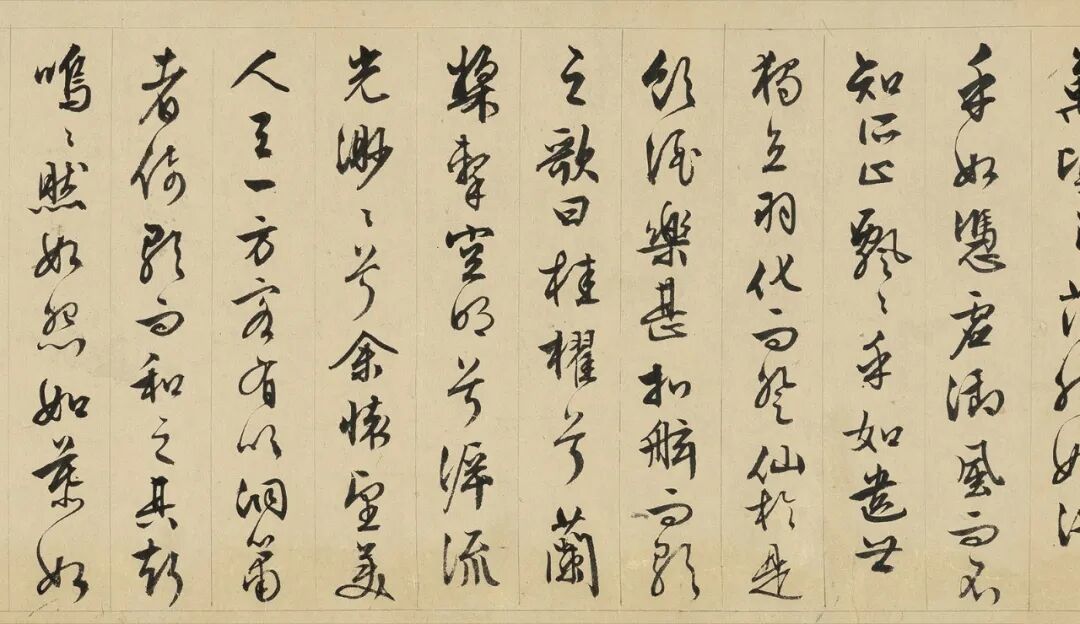 萬頃之茫然
乎如憑虛御風而不
知所止飄〻乎如遺世
獨立羽化而登仙於是
飲酒樂甚扣舷而歌
之歌曰桂櫂兮蘭
槳擊空明兮泝流
光渺〻兮余懷望美
人天一方客有吹洞簫
者倚歌而和之其聲
嗚〻然如怨如慕如